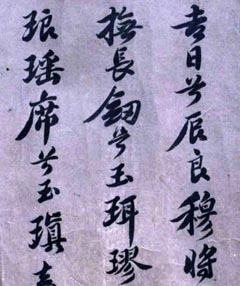 吉日兮辰良穆將
撫長釼兮玉珥璆
琅瑶席兮玉瑱